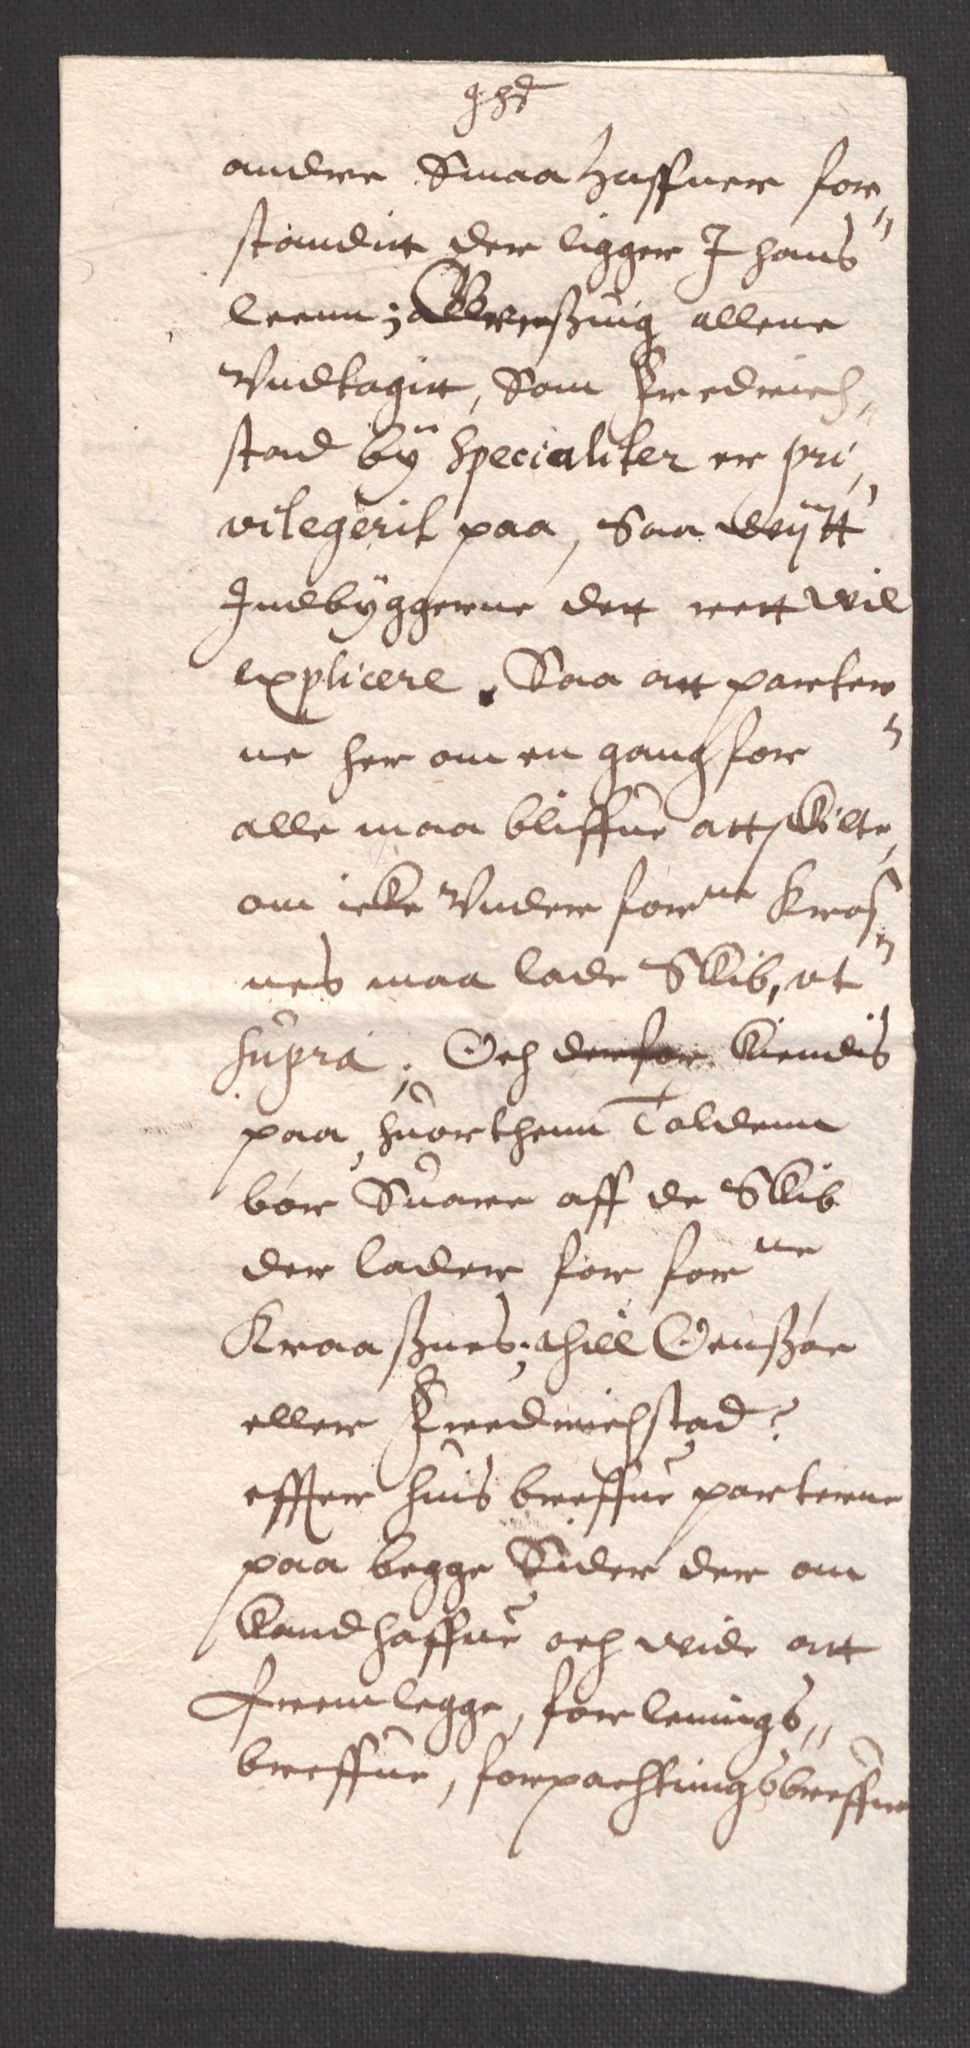 andre Smaa haffner for„
standitt der ligger I hans
leenn; allene
Vndtagitt, Som Fredrich„
stad bÿ Specialiter er pri„
vilegerit paa, Saa vijtt
Indbÿggerne dett rett vil
explicere. Saa att parter„
ne her om en gang for
alle maa bliffue attskilte,
om icke Vnder for^ne Kraas„
nes maa lade Skib, ut
supra. Och derfor kiendis
paa, huorthenn Toldenn
bør Suare aff de Skib
der lader for for^ne
Kraasznes, thill Onszøe
eller Fredrichstad?
effter huis breffue parterne
paa begge Sider der om
kand haffue och vide att
fremlegge, forlenings„
breffue, forpachtningsbreffue